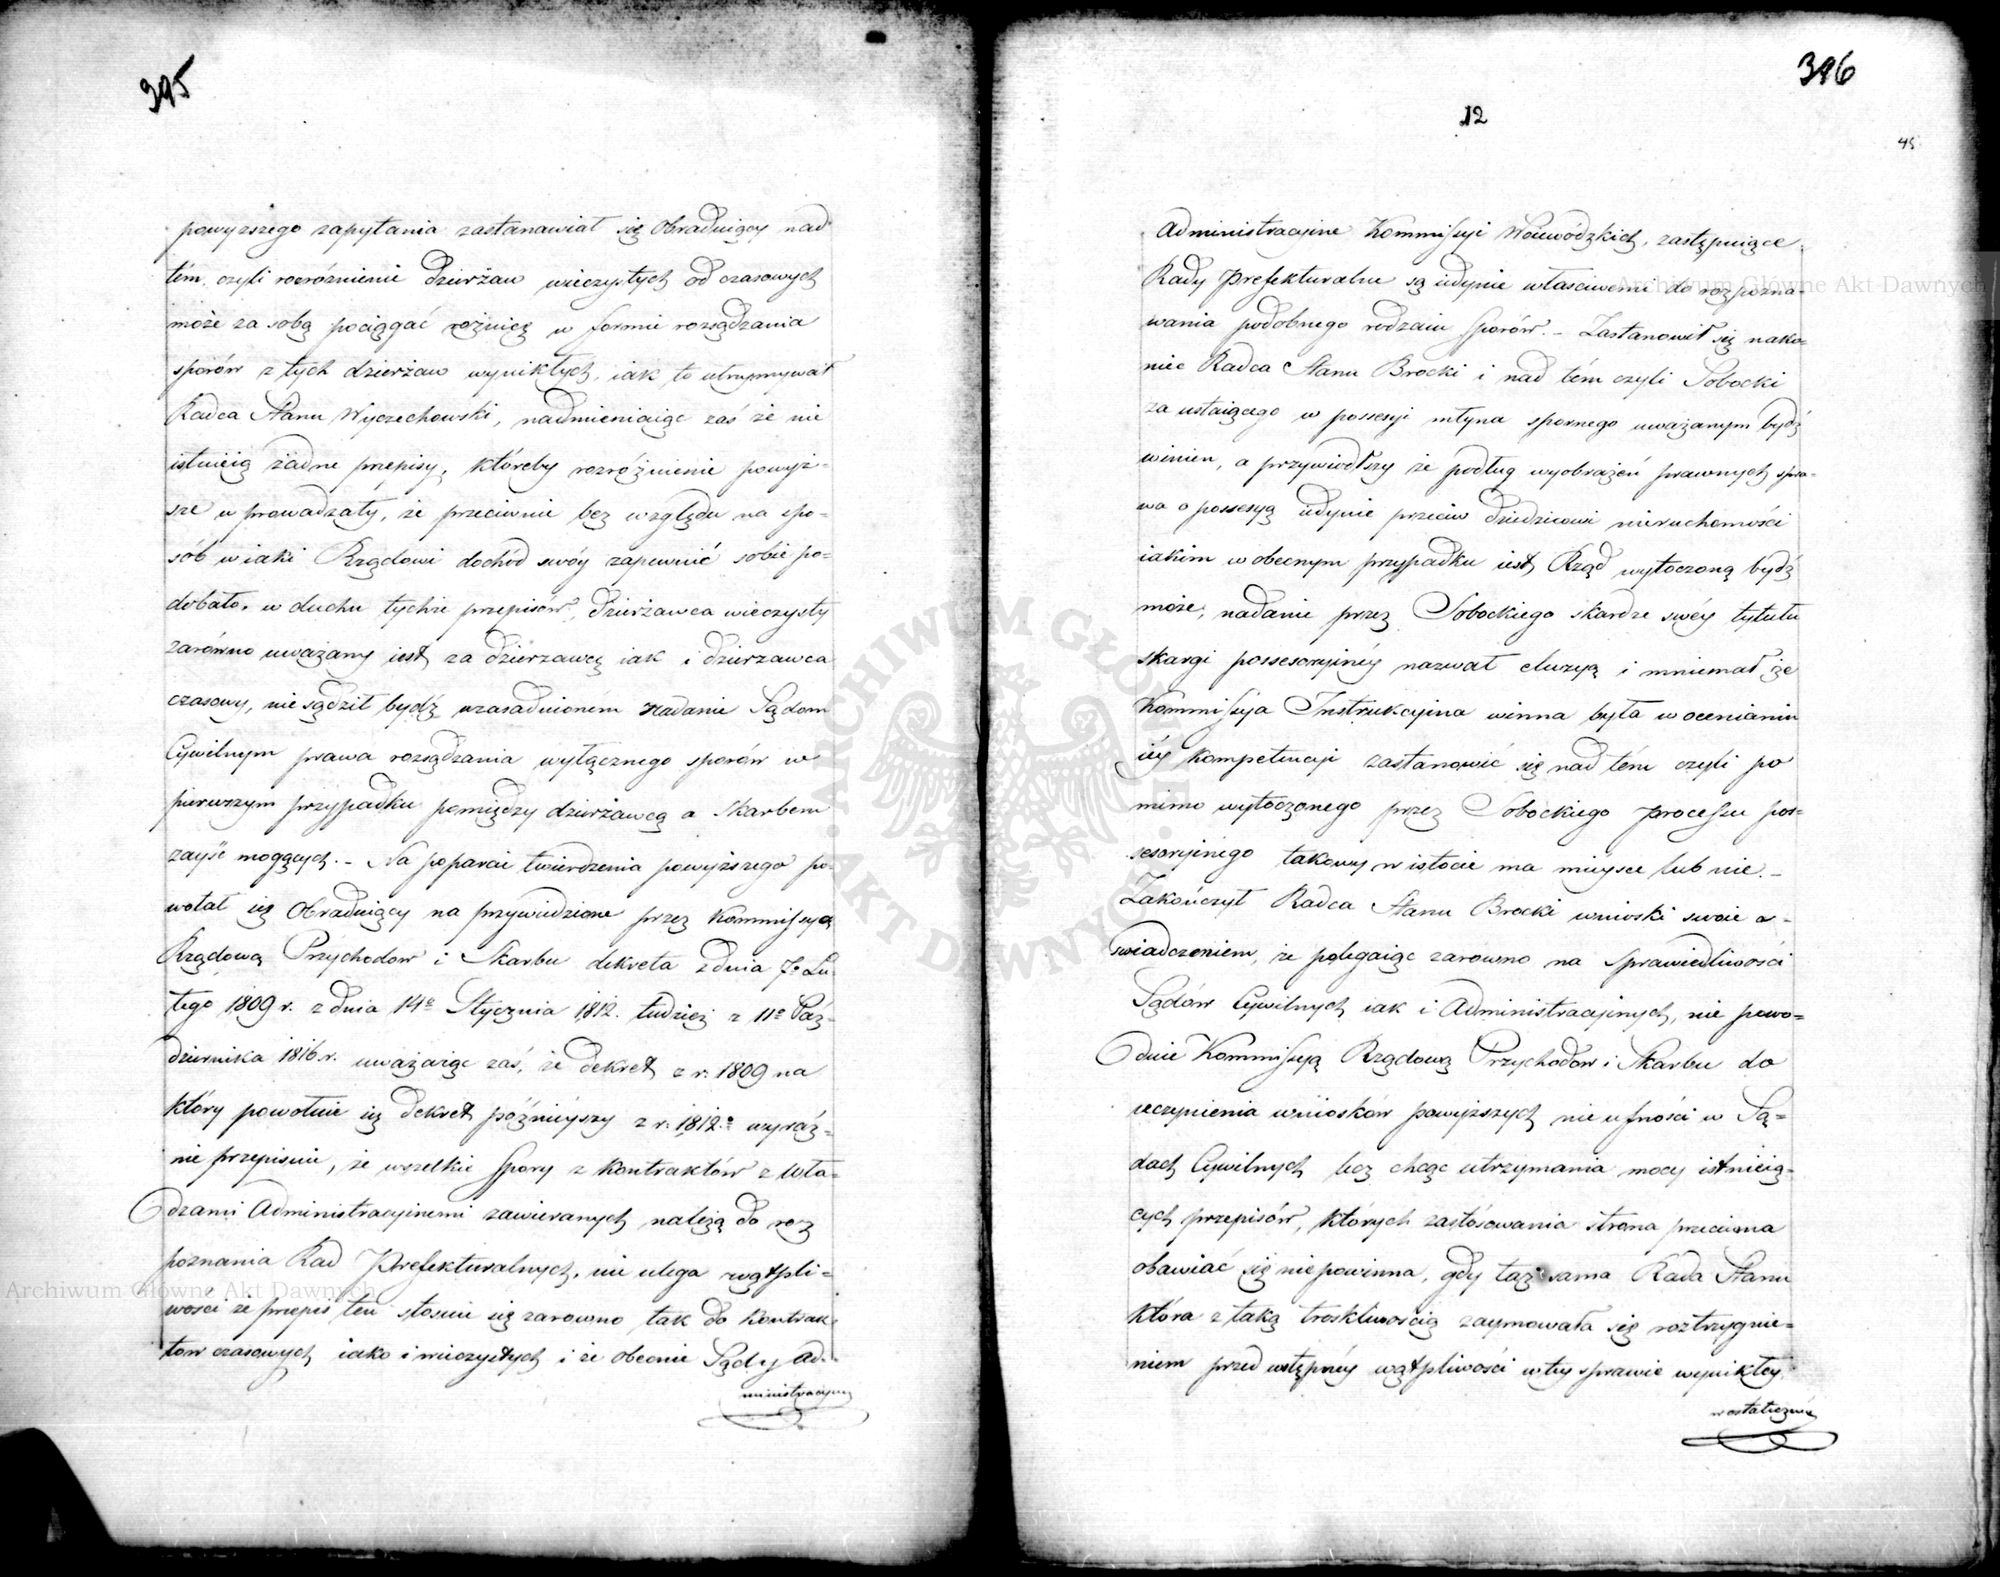 395
powyzszego zapytania zastanawiał się Obraduiący nad
tém, czyli rozróżnienie dzierżaw wieczystych od czasowych
może za sobą pociągać różnicę w formie rozsądzania
sporów z tych dzierżaw wynikłych, iak to utrzymywał
Radca Stanu Wyczechowski, nadmieniaiąc zaś że nie
istnieią żadne przepisy, któreby rozróżnienie powyż-
sze wprowadzały, że przeciwnie bez względu na spo-
sób w iaki Rządowi dochód swóy zapewnić sobie po-
dobało, w duchu tychże przepisów, dzierżawca wieczysty
zarówno uważany iest za dzierzawcę iak i dzierzawca
czasowy, nie sądził bydź uzasadnioném nadanie Sądom
Cywilnym prawa rozsądzania wyłącznego sporów w
pierwszym przypadku pomiędzy dzierżawcą a Skarbem
zayść mogących. - Na poparcie twierdzenia powyższego po-
wołał się Obraduiący na przywiedzione przez Kommissyą
Rządową Przychodow i Skarbu dekreta z dnia 7o Lu-
tego 1809 r. z dnia 14o Stycznia 1812. tudzież z 11o Paź-
dziernika 1816 r. uważaiąc zaś, że dekret z r. 1809 na
który powołuie się dekret późnieyszy z r. 1812o wyraź-
nie przepisuie, że wszelkie Spory z Kontraktów z Wła-
dzami Administracyinemi zawieranych należą do roz
poznania Rad Prefekturalnych, nie ulega wątpli-
wości że przepis ten stosuie się zarowno tak do Kontrak-
tow czasowych iako i wieczystych i że obecnie Sądy Ad-
ministracyine
396
12
45
Administracyine Kommissyi Woiewódzkich, zastępuiące
Rady Prefekturalne są iedynie właściwemi do rozpozna-
wania podobnego rodzaiu Sporów. - Zastanowił się nako-
niec Radca Stanu Brocki i nad tém czyli Sobocki
za ustaiącego w possesyi młyna spornego uważanym bydź
winien, a przywiodłszy że podług wyobrażeń prawnych spra-
wa o possesyą iedynie przeciw dziedzicowi nieruchomości
iakim w obecnym przypadku iest Rząd wytoczoną bydź
może, nadanie przez Sobockiego skardze swéy tytułu
skargi possesoryinéy nazwał eluzyą i mniemał że
Kommissyia Instrukcyina winna była w ocenianiu
iéy kompetencyi zastanowić się nad tém czyli po
mimo wytoczonego przez Sobockiego processu pos-
sesoryinego takowy w istocie ma mieysce lub nie. -
Zakończył Radca Stanu Brocki wnioski swoie o-
świadczeniem, że polegaiąc zarowno na Sprawiedliwości
Sądów Cywilnych iak i Administracyinych, nie powo-
duie Kommissyą Rządową Przychodów i Skarbu do
uczynienia wniosków powyższych nieufności w Są-
dach Cywilnych lecz chęć utrzymania mocy istnieią-
cych przepisów, których zastósowania strona przeciwna
obawiać się nie powinna, gdy taż sama Rada Stanu
która z taką troskliwością zaymowała się roztrzygnie-
niem przedwstępnéy wątpliwości w téy sprawie wynikłey,
w ostateczné
ARCHIWUM GŁÓWNE AKT DAWNYCH
Archiwum Główne Akt Dawnych
Archiwum Główne Akt Dawnych